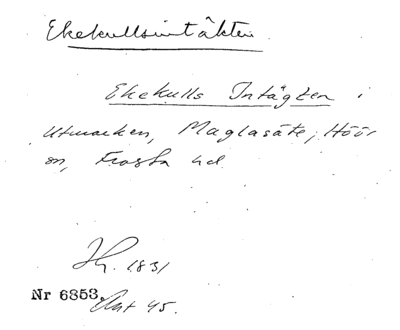 Ekekullsintäkten.
Ekekulls Intägten i
utmarken, Maglasäte, Höör
sn, Frosta hd.
1831
Nr 6853. Akt 45.